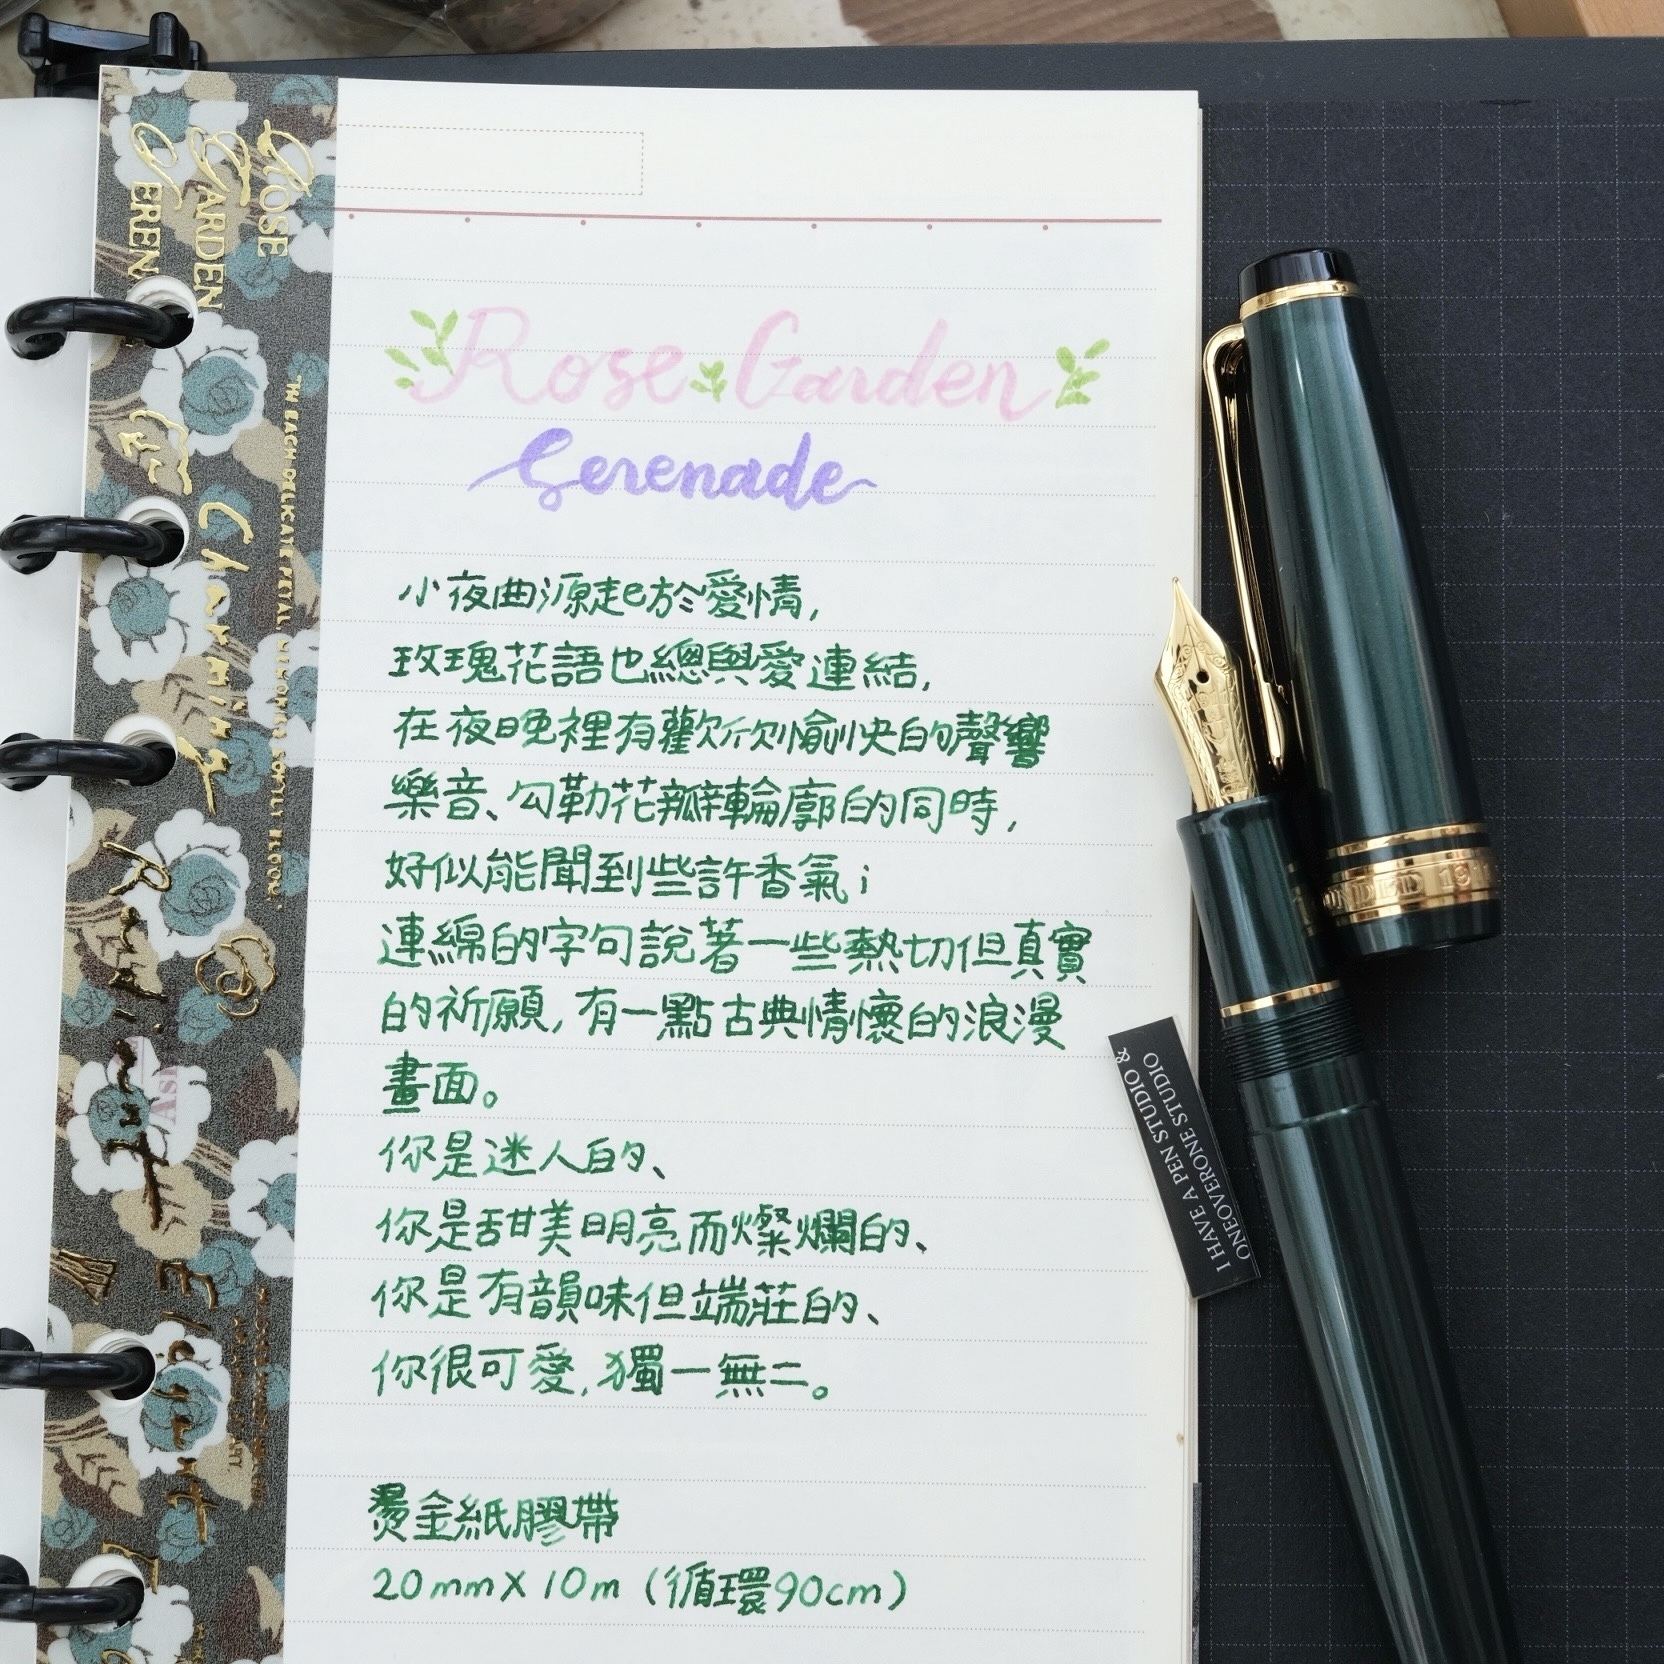 ROSE
GARDEN
Rose Garden
Serenade
小夜曲源起於愛情,
玫瑰花語也總與愛連結,
在夜晚裡有歡欣愉快的聲響
樂音、勾勒花瓣輪廓的同時,
好似能聞到些許香氣;
連綿的字句說著一些熱切但真實
的祈願,有一點古典情懷的浪漫
畫面。
你是迷人的、
你是甜美明亮而燦爛的、
你是有韻味但端莊的、
你很可愛,獨一無二。
燙金紙膠帶
20mm X 10m (循環90cm)
Charming
Elegant
I HAVE A PEN STUDIO &
ONEOVERONE STUDIO